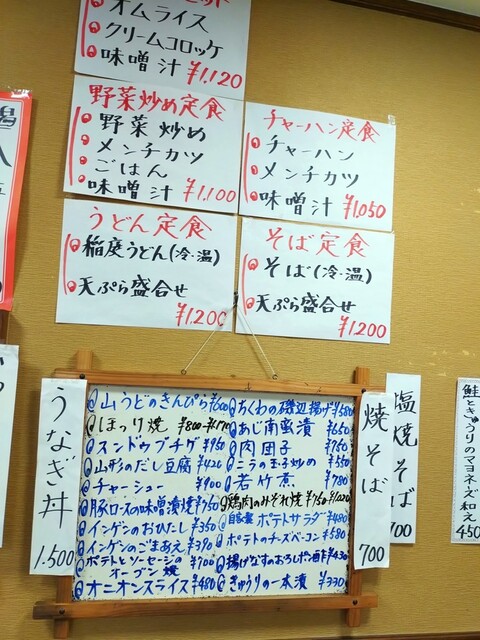 オムライス
クリームコロッケ
味噌汁 ¥1,120
野菜炒め定食
野菜炒め
メンチカツ
ごはん
味噌汁 ¥1,100
チャーハン定食
チャーハン
メンチカツ
味噌汁 ¥1,050
うどん定食
稲庭うどん(冷・温)
天ぷら盛合せ
¥1,200
そば定食
そば(冷・温)
天ぷら盛合せ
¥1,200
うなぎ丼
1.500
山うどのきんぴら ¥600
ほっけ焼 ¥800
スンドゥブチゲ ¥950
山形のだし豆腐 ¥420
チャーシュー ¥900
豚ロスの味噌漬焼 ¥750
インゲンのおひたし ¥350
インゲンのごまあえ ¥390
ポテトとソーセージのオーブン焼 ¥700
オニオンスライス ¥480
ちくわの磯辺揚げ ¥580
あじ南蛮漬 ¥650
肉団子 ¥750
ニラの玉子炒め ¥550
若竹煮 ¥780
鶏肉のみぞれ焼 ¥750
自家製 ポテトサラダ ¥480
ポテトのチーズベーコン ¥580
揚げなすのおろしポン酢 ¥430
きゅうりの一本漬 ¥330
焼そば
700
塩焼そば
700
鮭ときゅうりのマヨネーズ和え
450